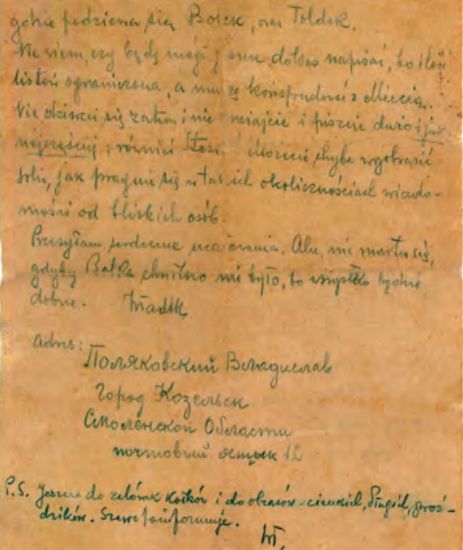 gdzie podziewa się Bolek, oraz Toldek.
Nie wiem, czy będę mógł jeszcze do Was napisać, bo ilość
listów ograniczona, a muszę korespondować z Miecią.
Nie dziwcie się zatem i nie i piszcie dużo i jak
najczęściej; również Stasi. Możecie chyba wyobrazić
sobie, jak pragnie się w takich okolicznościach wiado-
mości od bliskich osób.
Przesyłam serdeczne ucałowania. Ale, nie martw się,
gdyby chwilowo nie było, bo wszystko będzie
dobrze. Władek
adres:
Поляковский Владислав
Город Козельск
Смоленской Области
почтовый ящик 12
P.S. Jeszcze do zelówek kołków i do obcasów - cienkich, długich, gwoź-
dzików. Szewc poinformuje.
W.